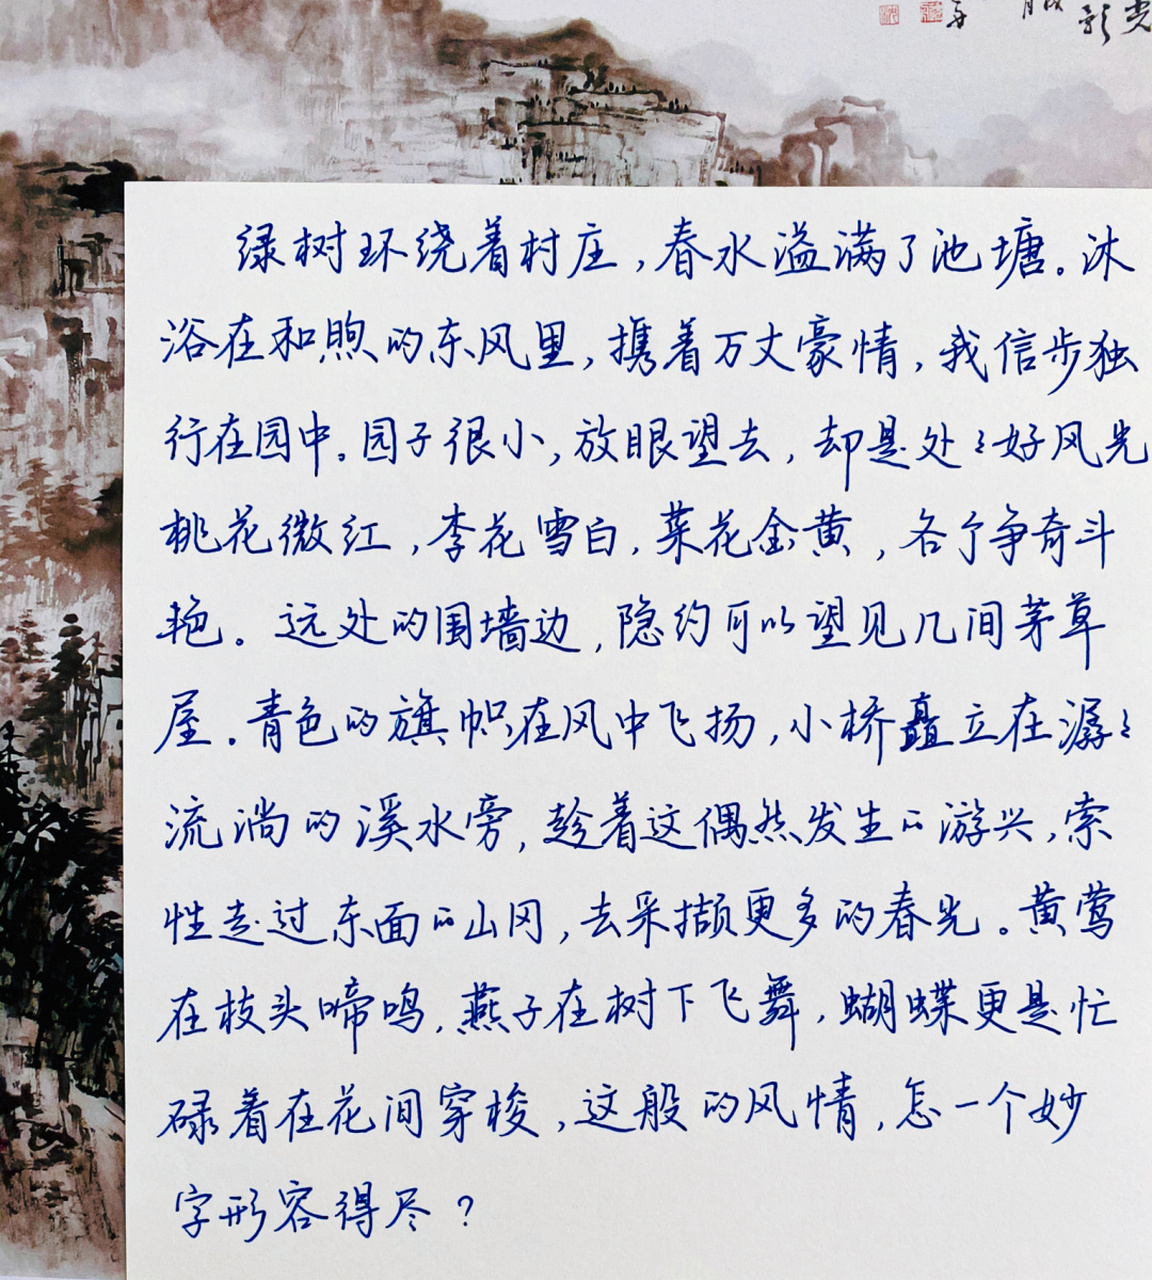 绿树环绕着村庄,春水溢满了池塘。沐
浴在和煦的东风里,携着万丈豪情,我信步独
行在园中。园子很小,放眼望去,却是处々好风光
桃花微红,李花雪白,菜花金黄,各个争奇斗
艳。远处的围墙边,隐约可以望见几间茅草
屋。青色的旗帜在风中飞扬,小桥矗立在潺々
流淌的溪水旁,趁着这偶然发生的游兴,索
性走过东面的山冈,去采撷更多的春光。黄莺
在枝头啼鸣,燕子在树下飞舞,蝴蝶更是忙
碌着在花间穿梭,这般的风情,怎一个妙
字形容得尽?